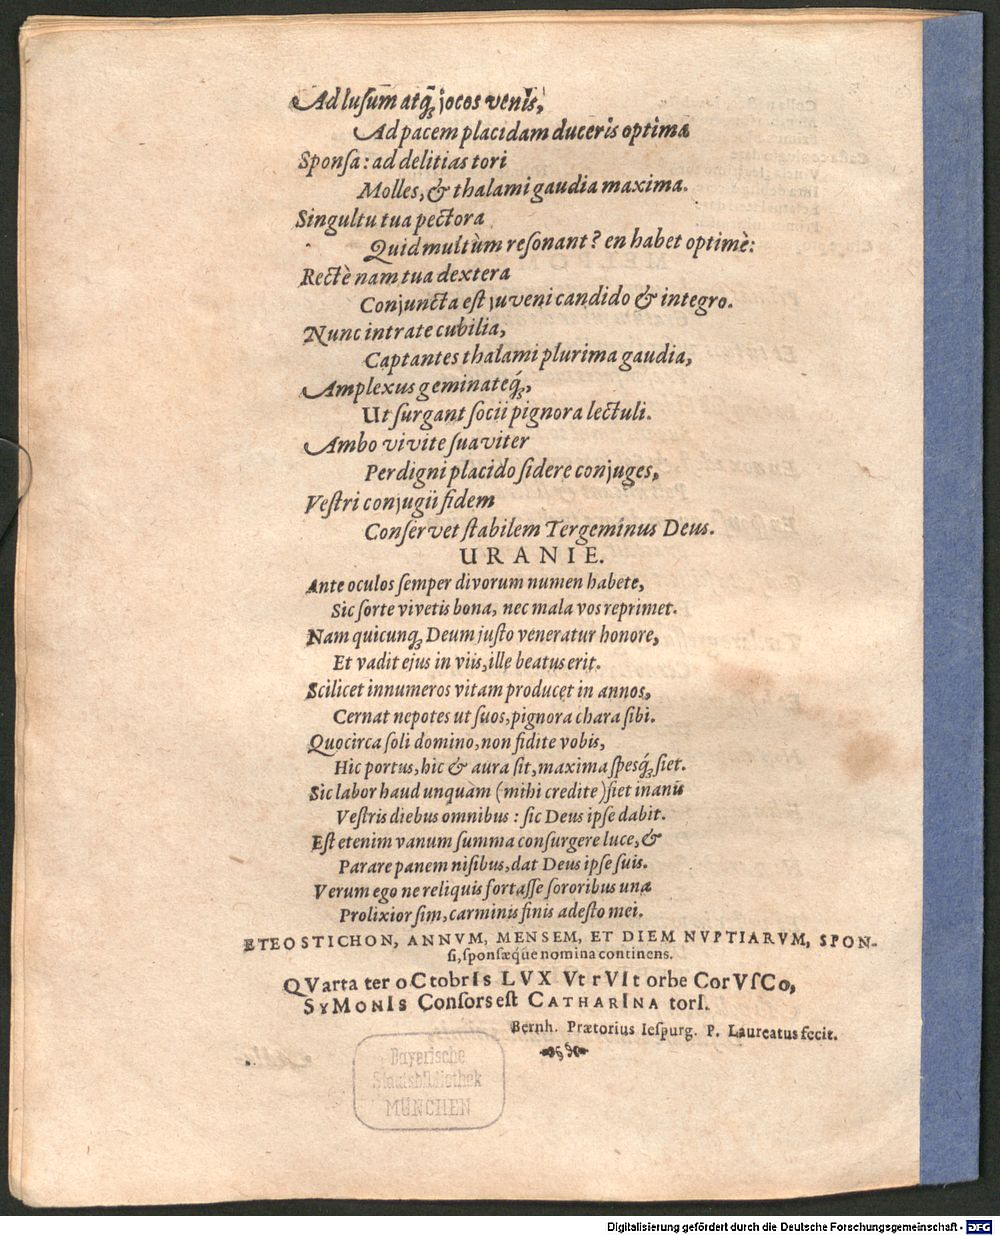 Ad luſum atq́; jocos venis,
Ad pacem placidam duceris optima
Sponſa: ad delitias tori
Molles, & thalami gaudia maxima.
Singultu tua pectora
Quid multùm reſonant? en habet optimè:
Rectè nam tua dextera
Conjuncta eſt juveni candido & integro.
Nunc intrate cubilia,
Captantes thalami plurima gaudia,
Amplexus geminateq́;,
Ut ſurgant ſocii pignora lectuli.
Ambo vivite ſuaviter
Perdigni placido ſidere conjuges,
Veſtri conjugii fidem
Conſervet ſtabilem Tergeminus Deus.
URANIE.
Ante oculos ſemper divorum numen habete,
Sic ſorte vivetis bona, nec mala vos reprimet.
Nam quicunq; Deum juſto veneratur honore,
Et vadit ejus in viis, ille beatus erit.
Scilicet innumeros vitam producet in annos,
Cernat nepotes ut ſuos, pignora chara ſibi.
Quocirca ſoli domino, non fidite vobis,
Hic portus, hic & aura ſit, maxima ſpesq́; ſiet.
Sic labor haud unquàm (mihi credite) ſiet inanis
Veſtris diebus omnibus: ſic Deus ipſe dabit.
Eſt etenim vanum ſumma conſurgere luce, &
Parare panem niſibus, dat Deus ipſe ſuis.
Verum ego ne reliquis fortaſſe ſororibus una
Prolixior ſim, carminis finis adeſto mei.
ETEOSTICHON, ANNVM, MENSEM, ET DIEM NVPTIARVM, SPON-
ſi, ſponſæq́ue nomina continens.
QVarta ter oCtobrIs LVX Vt rVIt orbe CorVſCo,
SyMonIs Conſors eſt CatharIna torI.
Bernh. Prætorius Ieſpurg. P. Laureatus fecit.
Bayerische
Staatsbibliothek
MÜNCHEN
Digitalisierung gefördert durch die Deutsche Forschungsgemeinschaft - DFG